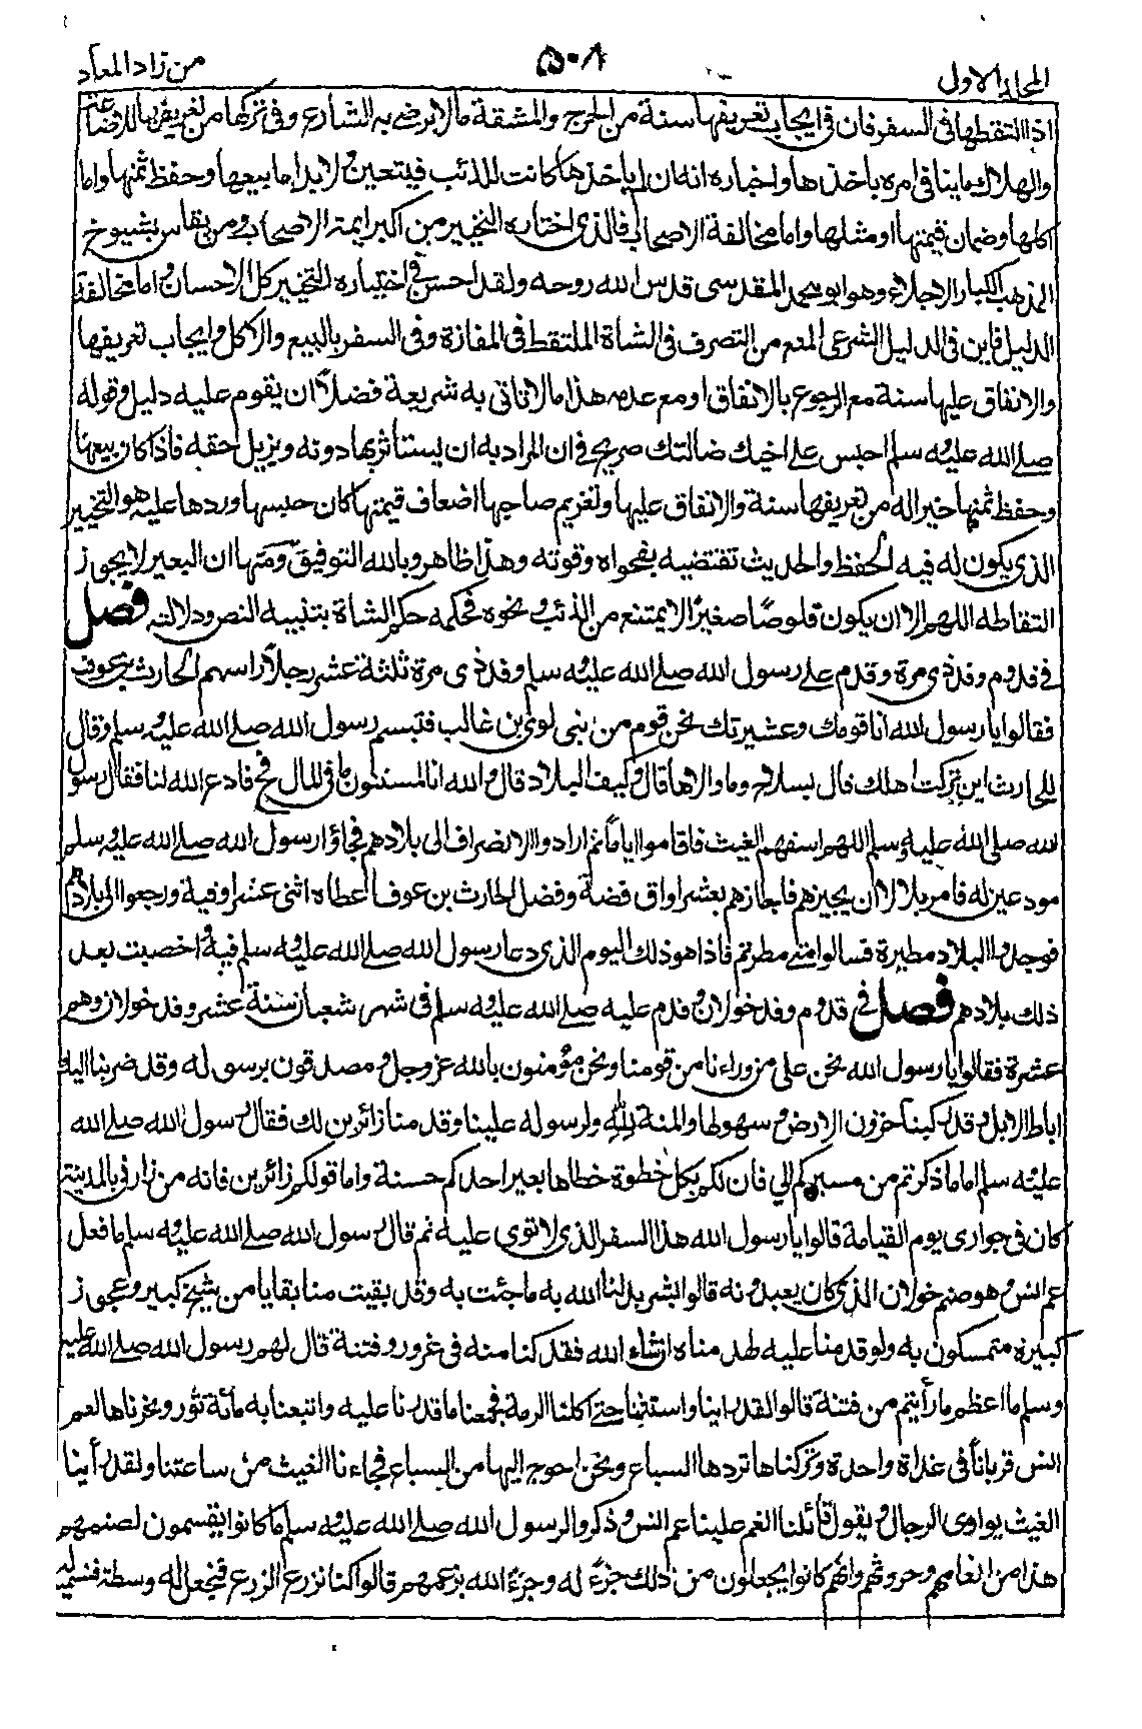 المجلد الاول
٥٠٨
من زاد المعاد
اذا التقطها فى السفر فان فى ايجاب تعريفها سنة من الحرج والمشقة مالا يرضى به الشارع وفى تركها من تعريضها للاضاعة
والهلاك ما ينافى امره باخذها واخباره انه ان لم ياخذها كانت للذئب فيتعين ولابد اما بيعها وحفظ ثمنها واما
اكلها وضمان قيمتها او مثلها واما مخالفة الاصحاب فالذى اختاره التخيير من اكبر ايمة الاصحاب ومن يقاس بشيوخ
المذهب الكبار الاجلاء وهو ابو محمد المقدسى قدس الله روحه ولقد احسن فى اختياره التخيير كل الاحسان واما مخالفة
الدليل فاين فى الدليل الشرعى المنع من التصرف فى الشاة الملتقط فى المفازة وفى السفر بالبيع والاكل وايجاب تعريفها
والانفاق عليها سنة مع الرجوع بالانفاق او مع عدمه هذا ما لا تاتى به شريعة فضلاً ان يقوم عليه دليل وقوله
صلى الله عليه وسلم احبس على اخيك ضالتك صريح فى ان المراد به ان يستأثر بها دونه ويزيل حقه فاذا كان بيعها
وحفظ ثمنها خير اله من تعريفها سنة والانفاق عليها وتغريم صاحبها اضعاف قيمتها كان حبسها وردها عليه هو التخيير
الذى يكون له فيه الحفظ والحديث تقتضيه بفحواه وقوته وهذا ظاهر وبالله التوفيق ومنها ان البعير لا يجوز
التقاطه اللهم الا ان يكون قلوصًا صغيرًا لا يمتنع من الذئب ونحوه فحكمه حكم الشاة بتنبيه النص ودلالته فصل
فى قدوم وفد ذى مرة وقدم على رسول الله صلى الله عليه وسلم وفد ذى مرة ثلثة عشر رجلاً راسهم الحارث بن عوف
فقالوا يا رسول الله انا قومك وعشيرتك نحن قوم من بنى لوى بن غالب فتبسم رسول الله صلى الله عليه وسلم وقال
للحارث اين تركت اهلك قال بسلاح وما والاها قال وكيف البلاد قال والله انا لمسنتون ما فى المال مخ فادع الله لنا فقال رسول
الله صلى الله عليه وسلم اللهم اسقهم الغيث فاقاموا اياماً ثم ارادوا الانصراف الى بلادهم فجاؤا رسول الله صلى الله عليه وسلم
مودعين له فامر بلالا ان يجيزهم فاجازهم بعشر اواق فضة وفضل الحارث بن عوف اعطاه اثنى عشر اوقية ورجعوا الى بلادهم
فوجدوا البلاد مطيرة فسالوا متى مطرتم فاذا هو ذلك اليوم الذى دعا رسول الله صلى الله عليه وسلم فيه واخصبت بعد
ذلك بلادهم فصل فى قدوم وفد خولان وقدم عليه صلى الله عليه وسلم فى شهر شعبان سنة عشر وفد خولان وهم
عشرة فقالوا يا رسول الله نحن على من وراءنا من قومنا ونحن مؤمنون بالله عز وجل ومصدقون برسوله وقد ضربنا اليك
اباط الابل وقد ركبنا حزون الارض وسهولها والمنة لله ولرسوله علينا وقدمنا زائرين لك فقال رسول الله صلى الله
عليه وسلم اما ما ذكرتم من مسيركم الى فان لكم بكل خطوة خطاها بعير احدكم حسنة واما قولكم زائرين فانه من زارنى بالمدينة
كان فى جوارى يوم القيامة قالوا يا رسول الله هذا السفر الذى لا توى عليه ثم قال رسول الله صلى الله عليه وسلم ما فعل
عم انس وهو صنم خولان الذى كان يعبدونه قالوا ابشر بدلنا الله به ما جئت به وقد بقيت منا بقايا من شيخ كبير وعجوز
كبيرة متمسكون به ولو قدمنا عليه لهدمناه ان شاء الله فقد كنا منه فى غرور وفتنة قال لهم رسول الله صلى الله عليه
وسلم ما اعظم ما رأيتم من فتنة قالوا لقد رايتنا واسنتنا حتى اكلنا الرمة فجمعنا ما قدرنا عليه وابتعنا به مائة ثور ونحرناها لعم
انس قرباناً فى غداة واحدة وتركناها تردها السباع ونحن احوج اليها من السباع فجاءنا الغيث من ساعتنا ولقد رأينا
الغيث يوارى الرجال ويقول قائلنا انعم علينا عم انس وذكروا لرسول الله صلى الله عليه وسلم ما كانوا يقسمون لصنمهم
هذا من انعامهم وحروثهم وانهم كانوا يجعلون من ذلك جزءً له وجزءً لله بزعمهم قالوا كنا نزرع الزرع فنجعل له وسطه فنسميه له